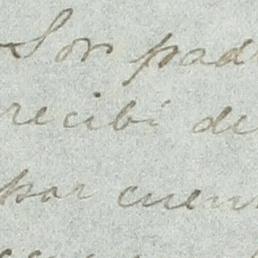 Son pad
recibi de
por cuen